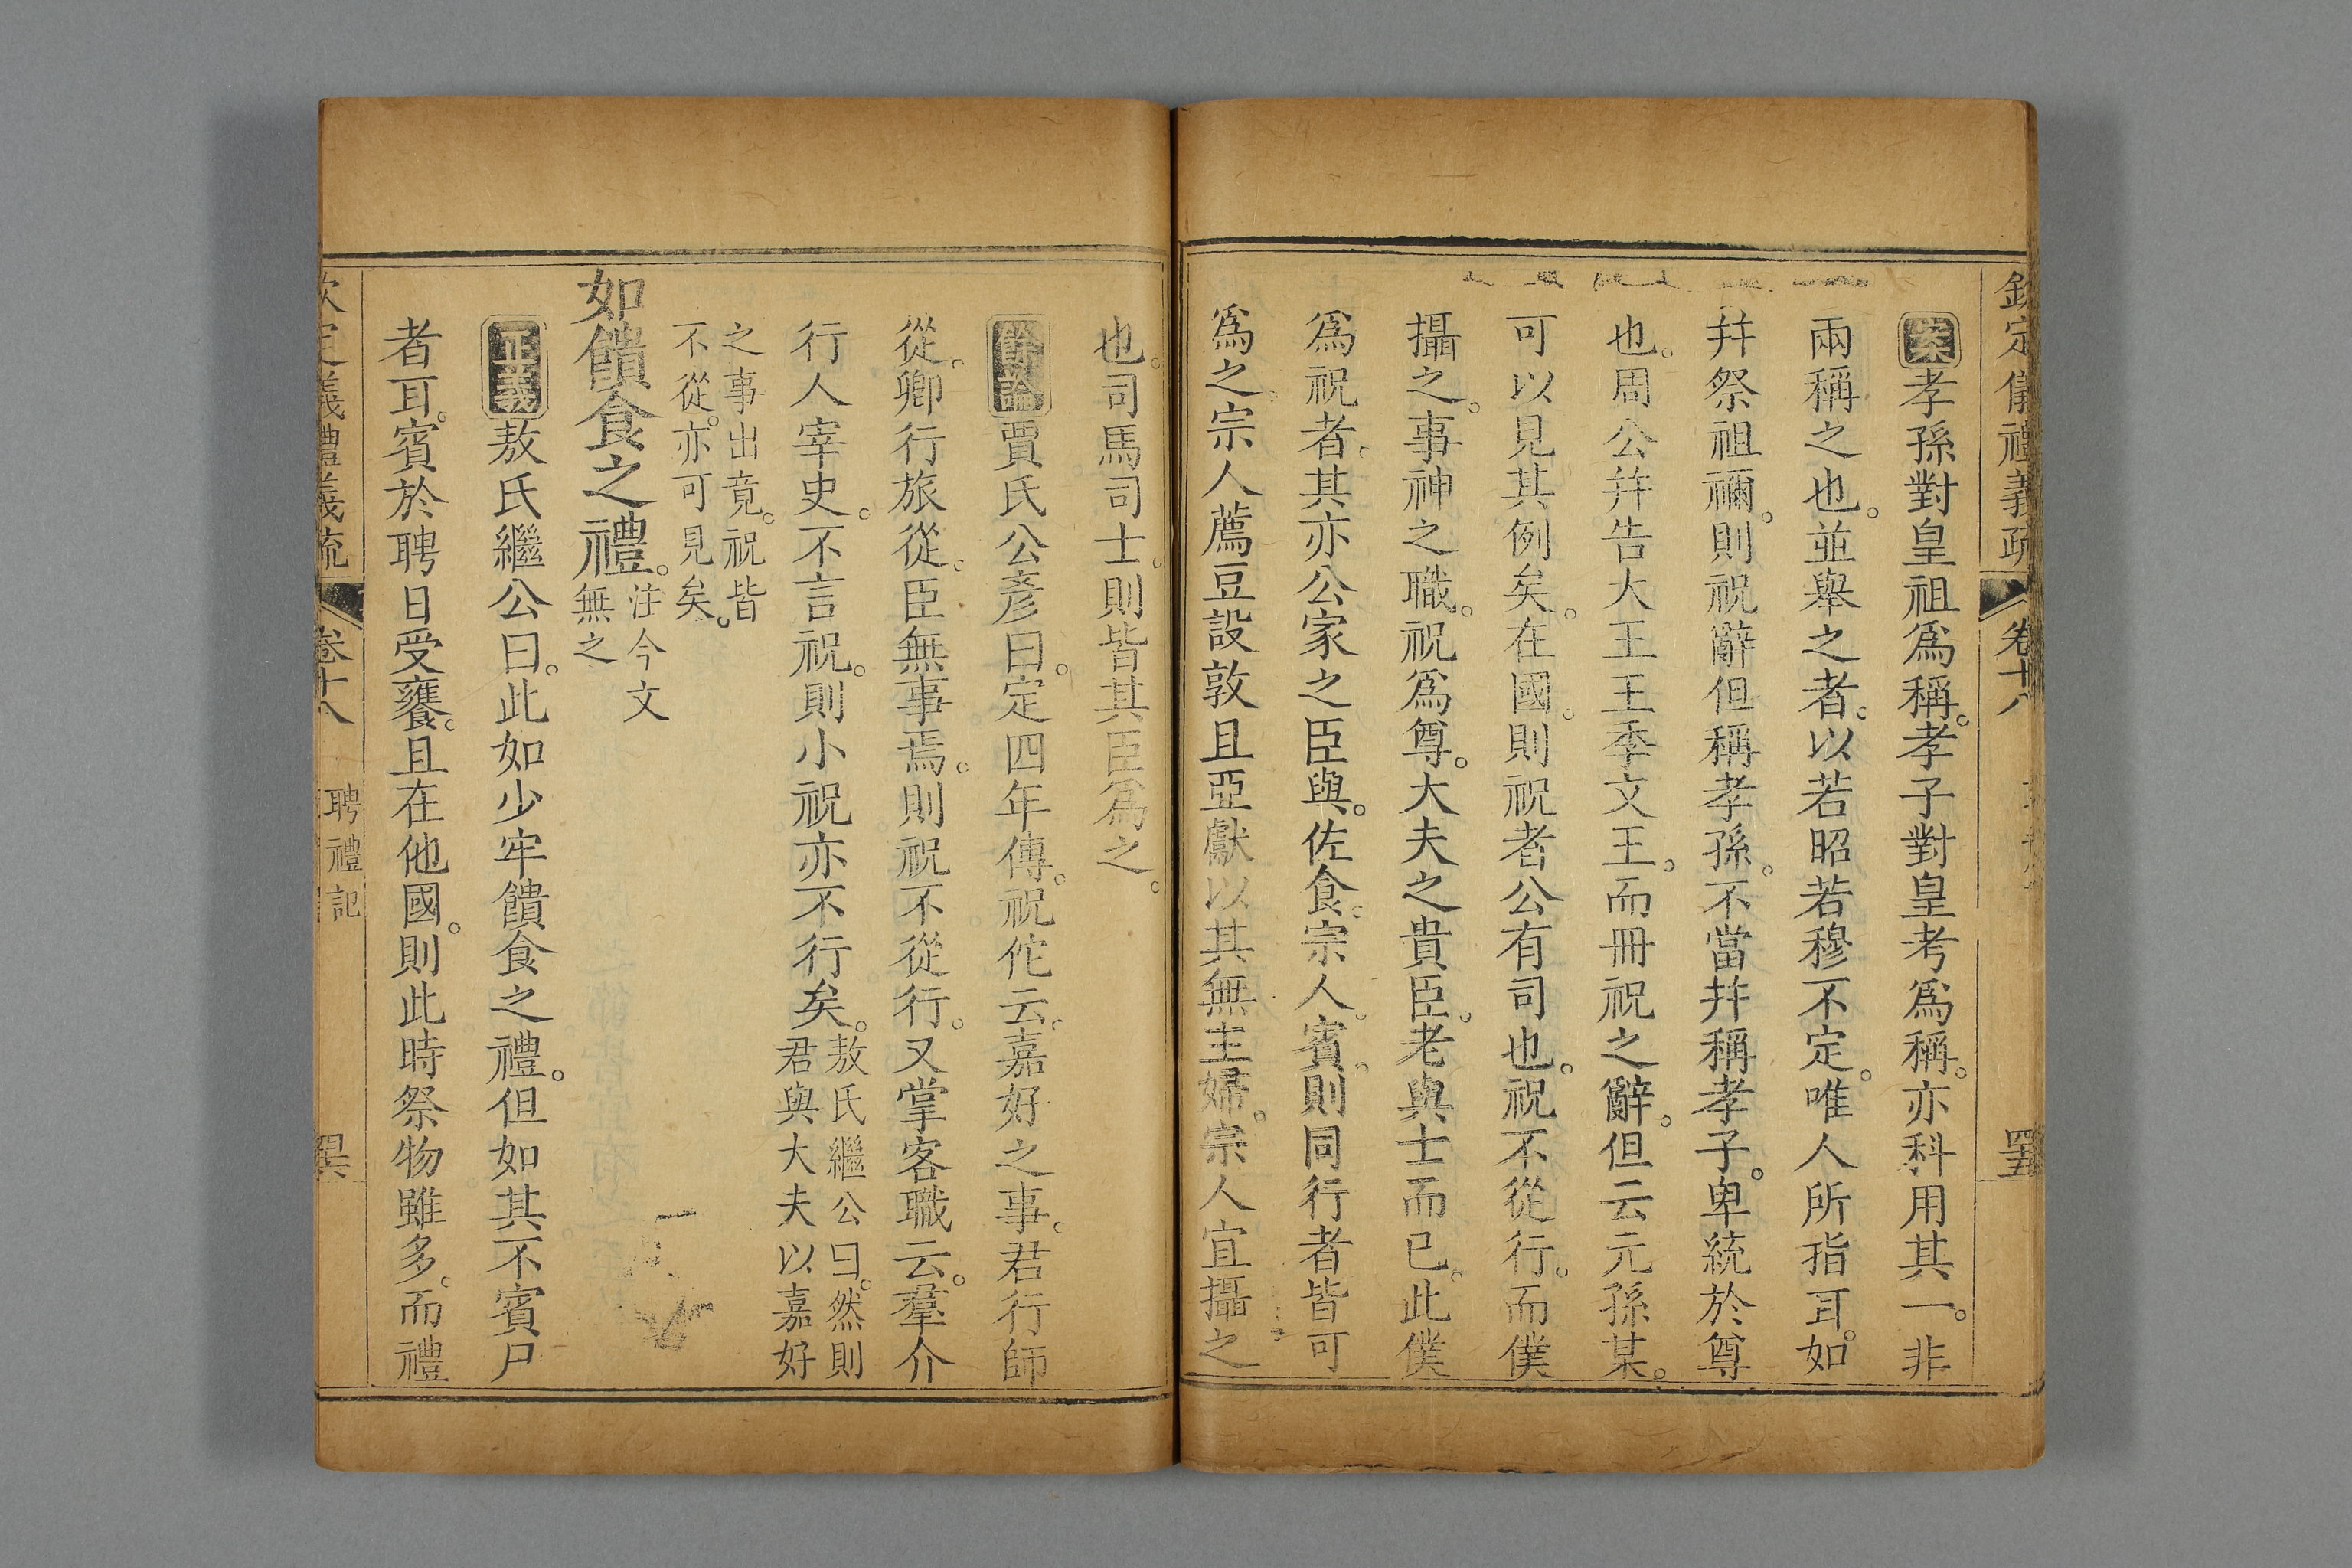 欽定儀禮義疏 卷十八 罣
案孝孫對皇祖爲稱。孝子對皇考爲稱。亦科用其一。非
兩稱之也。並舉之者。以若昭若穆不定。唯人所指耳。如
幷祭祖禰。則祝辭但稱孝孫。不當幷稱孝子。卑統於尊
也。周公幷告大王王季文王。而冊祝之辭。但云元孫某。
可以見其例矣。在國。則祝者公有司也。祝不從行。而僕
攝之。事神之職。祝爲尊。大夫之貴臣。老與士而已。此僕
爲祝者。其亦公家之臣與。佐食。宗人。賓。則同行者皆可
爲之。宗人薦豆設敦且亞獻以其無主婦。宗人宜攝之
也。司馬司士。則皆其臣爲之。
餘論賈氏公彥曰。定四年傳。祝佗云。嘉好之事。君行師
從。卿行旅從。臣無事焉。則祝不從行。又掌客職云。羣介
行人宰史。不言祝。則小祝亦不行矣。敖氏繼公曰。然則
君與大夫以嘉好
之事出竟。祝皆
不從。亦可見矣。
如饋食之禮。注今文
無之
正義敖氏繼公曰。此如少牢饋食之禮。但如其不賓尸
者耳。賓於聘日受饔。且在他國。則此時祭物雖多。而禮
欽定儀禮義疏 卷十八 聘禮記